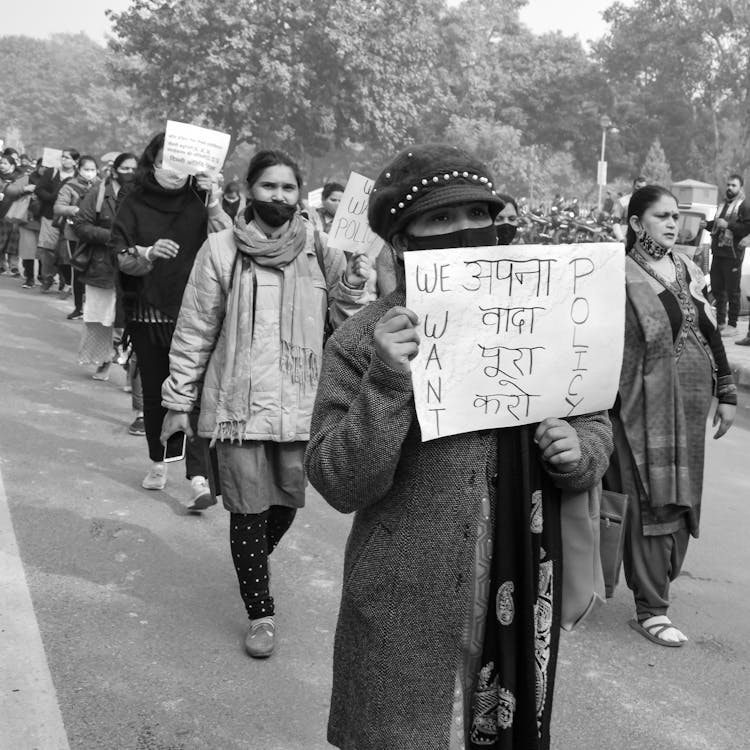 WE
WANT
अपना
वादा
पूरा
करो
POLICY
WE
WA
POLI